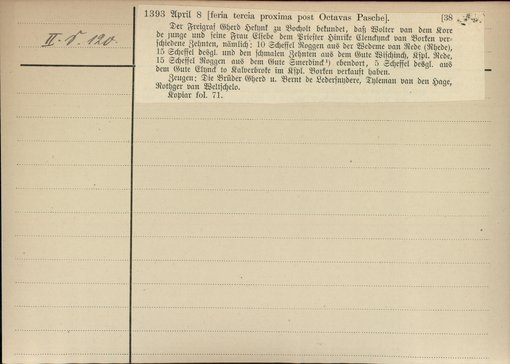 II. 5. 120.
1393 April 8 [feria tercia proxima post Octavas Pasche]. [38
Der Freigraf Gherd Heſynk zu Bocholt bekundet, daß Wolter van dem Kore
de junge und ſeine Frau Elſebe dem Prieſter Hinrike Clenckynck van Borken ver-
ſchiedene Zehnten, nämlich: 10 Scheffel Roggen aus der Wedeme van Rede (Rhede),
15 Scheffel desgl. und den ſchmalen Zehnten aus dem Gute Wiſchinch, Kſpl. Rede,
15 Scheffel Roggen aus dem Gute Smerdinck¹) ebendort, 5 Scheffel desgl. aus
dem Gute Elynck to Kalverbroke im Kſpl. Borken verkauft haben.
Zeugen: Die Brüder Gherd u. Bernt de Lederſnydere, Tyleman van den Hage,
Rothger van Welſchelo.
Kopiar fol. 71.